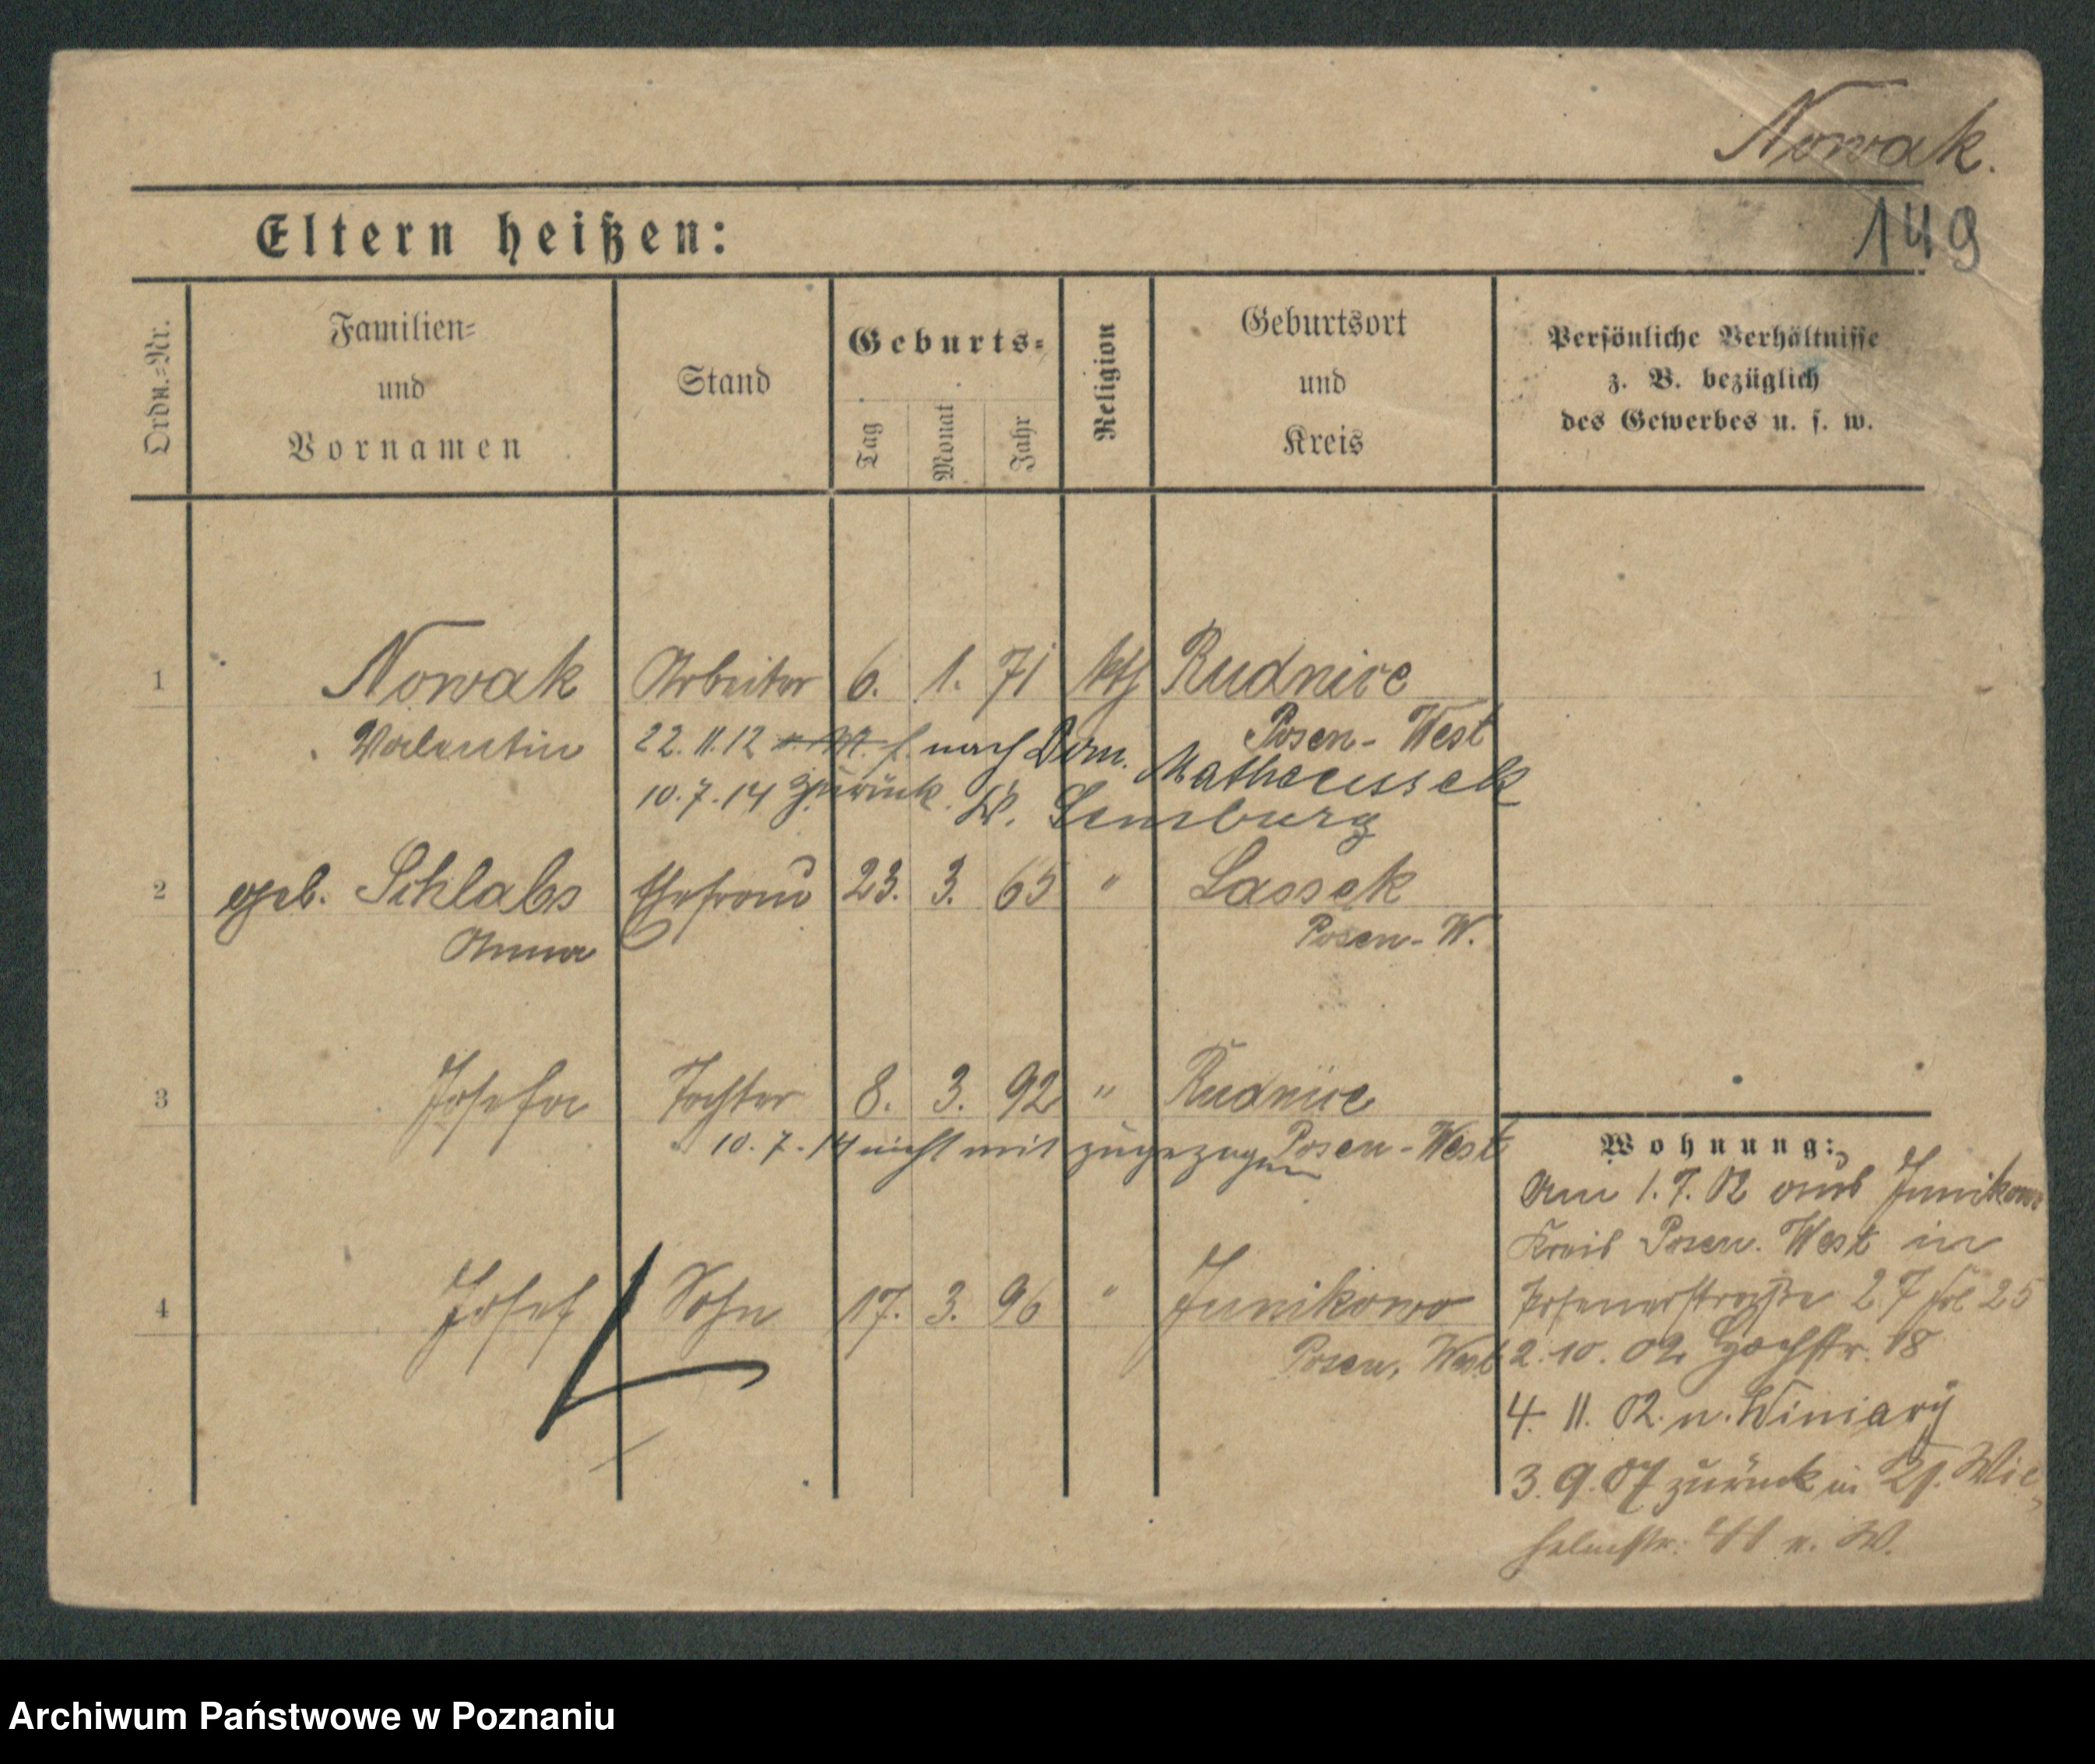 Nowak.
149
Eltern heißen:
Ordn.=Nr.
Familien=
und
Vornamen
Stand
Geburts=
Tag
Monat
Jahr
Religion
Geburtsort
und
Kreis
Persönliche Verhältnisse
z. B. bezüglich
des Gewerbes u. s. w.
1 Nowak Arbeiter 6. 1. 71 kth Rudnice
Valentin Posen-West
22.11.12 nach Dom.
10.7.14 zurück.
2 geb. Schlabs Ehefrau 23. 3. 65 " Lassek
Anna Posen-W.
3 Josefa Tochter 8. 3. 92 " Rudnice
Posen-West
10.7.14 nicht mit zugezogen
4 Josef Sohn 17. 3. 96 " Junikowo
Posen, West
Wohnung:
Am 1.7.02 aus Junikowo
Kreis Posen. West in
Posenerstraße 27
2.10.02 18
4.11.02 n. Winiary
3.9.07 zurück in
n. W.
Archiwum Państwowe w Poznaniu